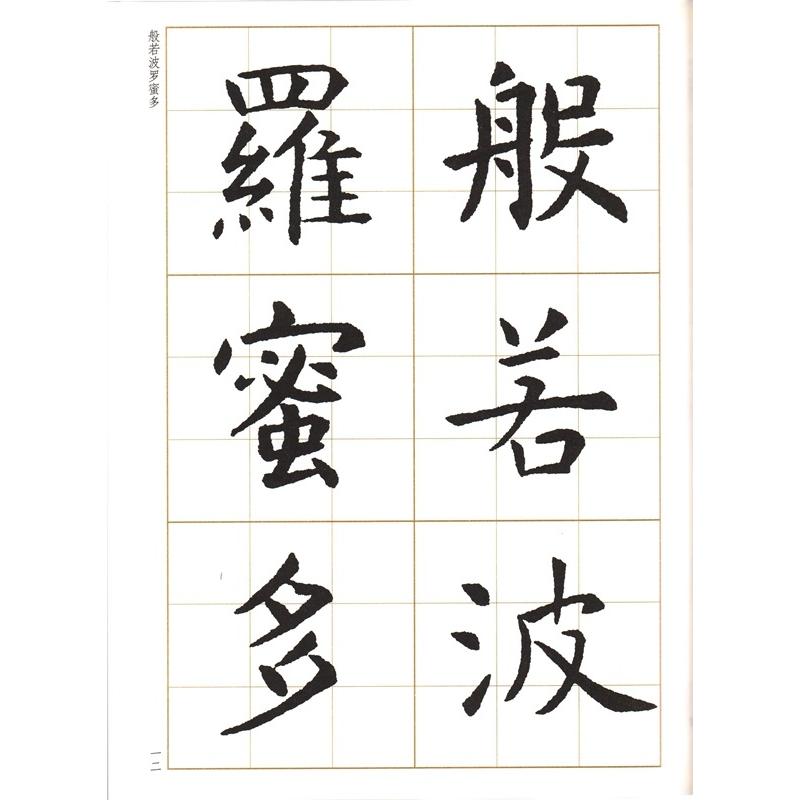 般若波
羅蜜多
般若波罗蜜多
一二